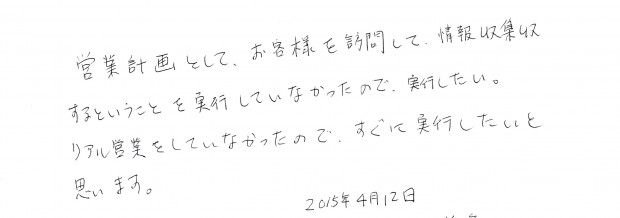 営業計画として、お客様を訪問して、情報収集収
するということを実行していなかったので、実行したい。
リアル営業をしていなかったので、すぐに実行したいと
思います。
2015年4月12日